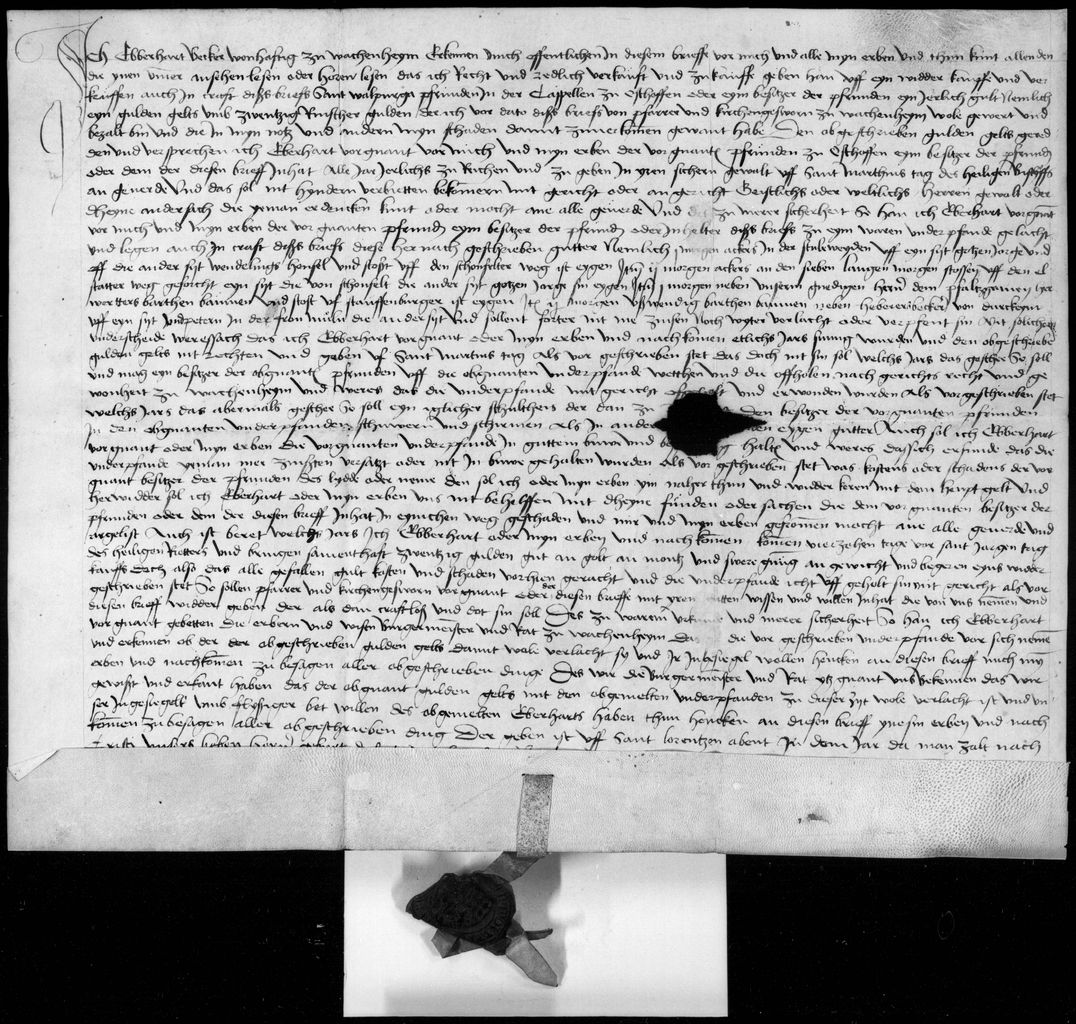 Ich Ebberhart Becker wonhafftig zu wachenheym Erkennen mich offentlichen In diesem brieffe vor mich und alle myn erben und thun kunt allen den
die ynen ummer ansehen lesen oder horen lesen das ich Recht und redlich verkaufft und zu kauffe geben han uff eyn widder kauffe und ver
kauffen auch In crafft diss briefs Sant walpurga pfrunden In der Cappellen zu Esthoffen oder eym besitzer der pfrunden eyn Jerlich gult Nemlich
eyn gulden gelts umb zwentzig Rinscher gulden der ich vor dato diss briefs von pfarrer und kirchengesworn zu wachenheym wole gewert und
bezalt bin und die in myn notz und andern myn schaden damit zuverkomen gewant habe Den obgeschrieben gulden gelts gered
den und versprechen ich Eberhart vorgnant vor mich und myn erben der vorgnanten pfrunden zu Esthoffen eym besitzer der pfrund
oder dem der diesen brieff Inhat Alle Jar Jerlichs zu Richen und zu geben In yren sichern gewalt uff Sant marthins tag des heiligen Bischoffs
an geuerde Und das sol nit hyndern verbietten bekomern nit gericht oder an gericht Geistlichs oder weltlichs herren gewalt oder
dheyne andersach die yeman erdencken kunt oder mocht ane alle geuerde Und zu merer sicherheit So han ich Eberhart vorgnant
vor mich und myn erben der vorgnanten pfrund eym besitzer der pfrund oder Inhelter diss briefs zu eym waren underpfande gelacht
und legen auch In craft diss briefs diese her nach geschrieben gutter Nemlich j morgen ackers In der stulweyden uff eyn syt gotzen Jorge und
uff die ander syt wendelings hensel und stost uff den schonfelter weg ist eygen Item ij morgen ackers an den sieben langen morgen stossen uff den el
statter weg geforcht eyn syt die von schonfelt die ander syt gotzen Jorge sin eygen Item j morgen neben unserm gnedigen hern dem pfaltzgrauen her
werkers barthen baumen und stost uf stauffenburger ist eygen Item ij morgen ussewendig barthen baumen neben von durckeym
uff eyn syt und petern In der fron muln die ander syt Und sollent forter nit me zinsen noch wyter verlacht oder verpfent sin Mit solichem
underscheide weressach das ich Ebberhart vorgnant oder myn erben und nachkomen etlichs Jars sumig wurden und den obgeschrieben
gulden gelts nit Rechten und geben uf Sant martins tag Als vor geschrieben stet das doch nit sin sol welchs Jars das geschee So soll
und mag eyn besitzer der obgnanten pfrunden uff die obgnanten underpfande wetthen und die uffholen nach gerichts recht und ge
wonheit zu wachenheym und weres das die underpfande mit gericht uffgeholt und erwonden wurden Als vorgeschrieben stet
welchs Jars das abermals geschee So soll eyn yglicher schultheis der dan zu den besitzer der vorgnanten pfrunden
In den obgnanten underpfanden schuwern und schirmen Als In ander eygen gutter Auch sol ich Ebberhart
vorgnant oder myn erben die vorgnanten underpfande In guttem buwe und halten und weres das sich erfunde das die
underpfande yeman mer zinsten versatzt oder nit in buwe gehalten wurden Als vor geschrieben stet was kostens oder schadens der vor
gnant besitzer der pfrunden des lydde oder neme den sol ich oder myn erben ym usz thun und widder keren mit dem heupt gelt Und
herwidder sol ich Eberhart oder myn erben uns nit behelffen mit dheyne funden oder sachen die dem vorgnanten besitzer der
pfrunden oder dem der diesen brieff Inhat In eynichen weg geschaden und mir und myn erben gefromen mocht ane alle geuerde und
argelist Auch ist beret welchs Jars Ich Ebberhart oder myn erben und nachkomen komen vierzehen tage vor sant Jorgen tag
des heiligen Ritters und bringen samenthafft zwentzig gulden gut an golt an montz und swere gnug an gewicht und begeren eyns widder
kauffs doch also das alle gefallen gult kosten und schaden vorhien geracht und die underpfande icht uff geholt sin mit gericht als vor
geschrieben stet So sollen pfarrer und kirchengesworn vorgnant oder der diesen brieffe mit yren gutten wissen und willen Inhat die von uns nemen und
diesen brieff widder geben der als dan crafftlos und dot sin soll Des zu warem urkunde und merer sicherheit So han ich Ebberhart
vorgnant gebetten die erbern und wisen burgermeister und Rat zu wachenheym Das die vor geschrieben underpfande vor sich neme
und erkennen ob der der obgeschrieben gulden gelts damit wole verlacht sy und Ir Ingesiegel wollen hencken an diesen brieff mich myn
erben und nachkomen zu besagen aller obgeschrieben dinge Des wir die burgermeister und Rat ytz gnant uns bekennen das wir
gewist und erkant haben das der obgnant gulden gelts mit den obgemelten underpfanden zu dieser zyt wole verlacht ist und un
ser Ingesiegell umb flyssiger bet willen des obgemelten Eberharts haben thun hencken an diesen brieff yne sin erben und nach
komen zu besagen aller obgeschrieben ding Der geben ist uff Sant lorentzen abent In dem Jar da man zalt nach
Cristi unsers lieben hern geburt